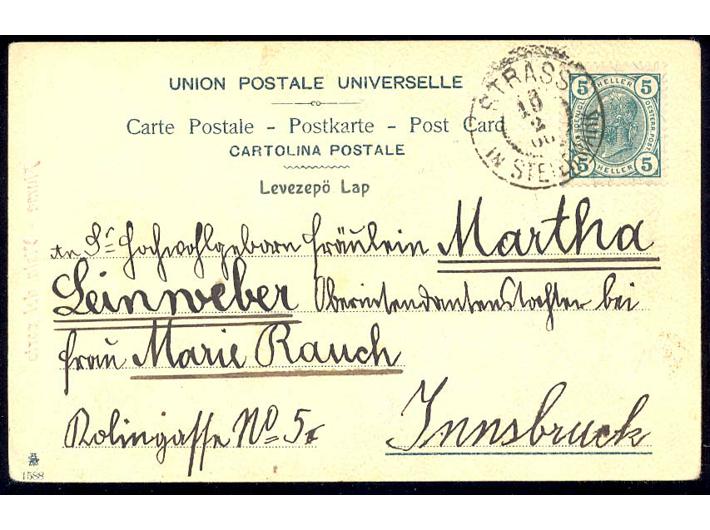 UNION POSTALE UNIVERSELLE
Carte Postale - Postkarte - Post Card
CARTOLINA POSTALE
Levezepö Lap
STRASS
18
2
IN STEIERMARK
5 HELLER 5
5 HELLER 5
An Sr. Hochwohlgeboren Fräulein Martha
Leinweber Oberintendantenstochter bei
Frau Marie Rauch
Kolingasse No 5.
Innsbruck
1588